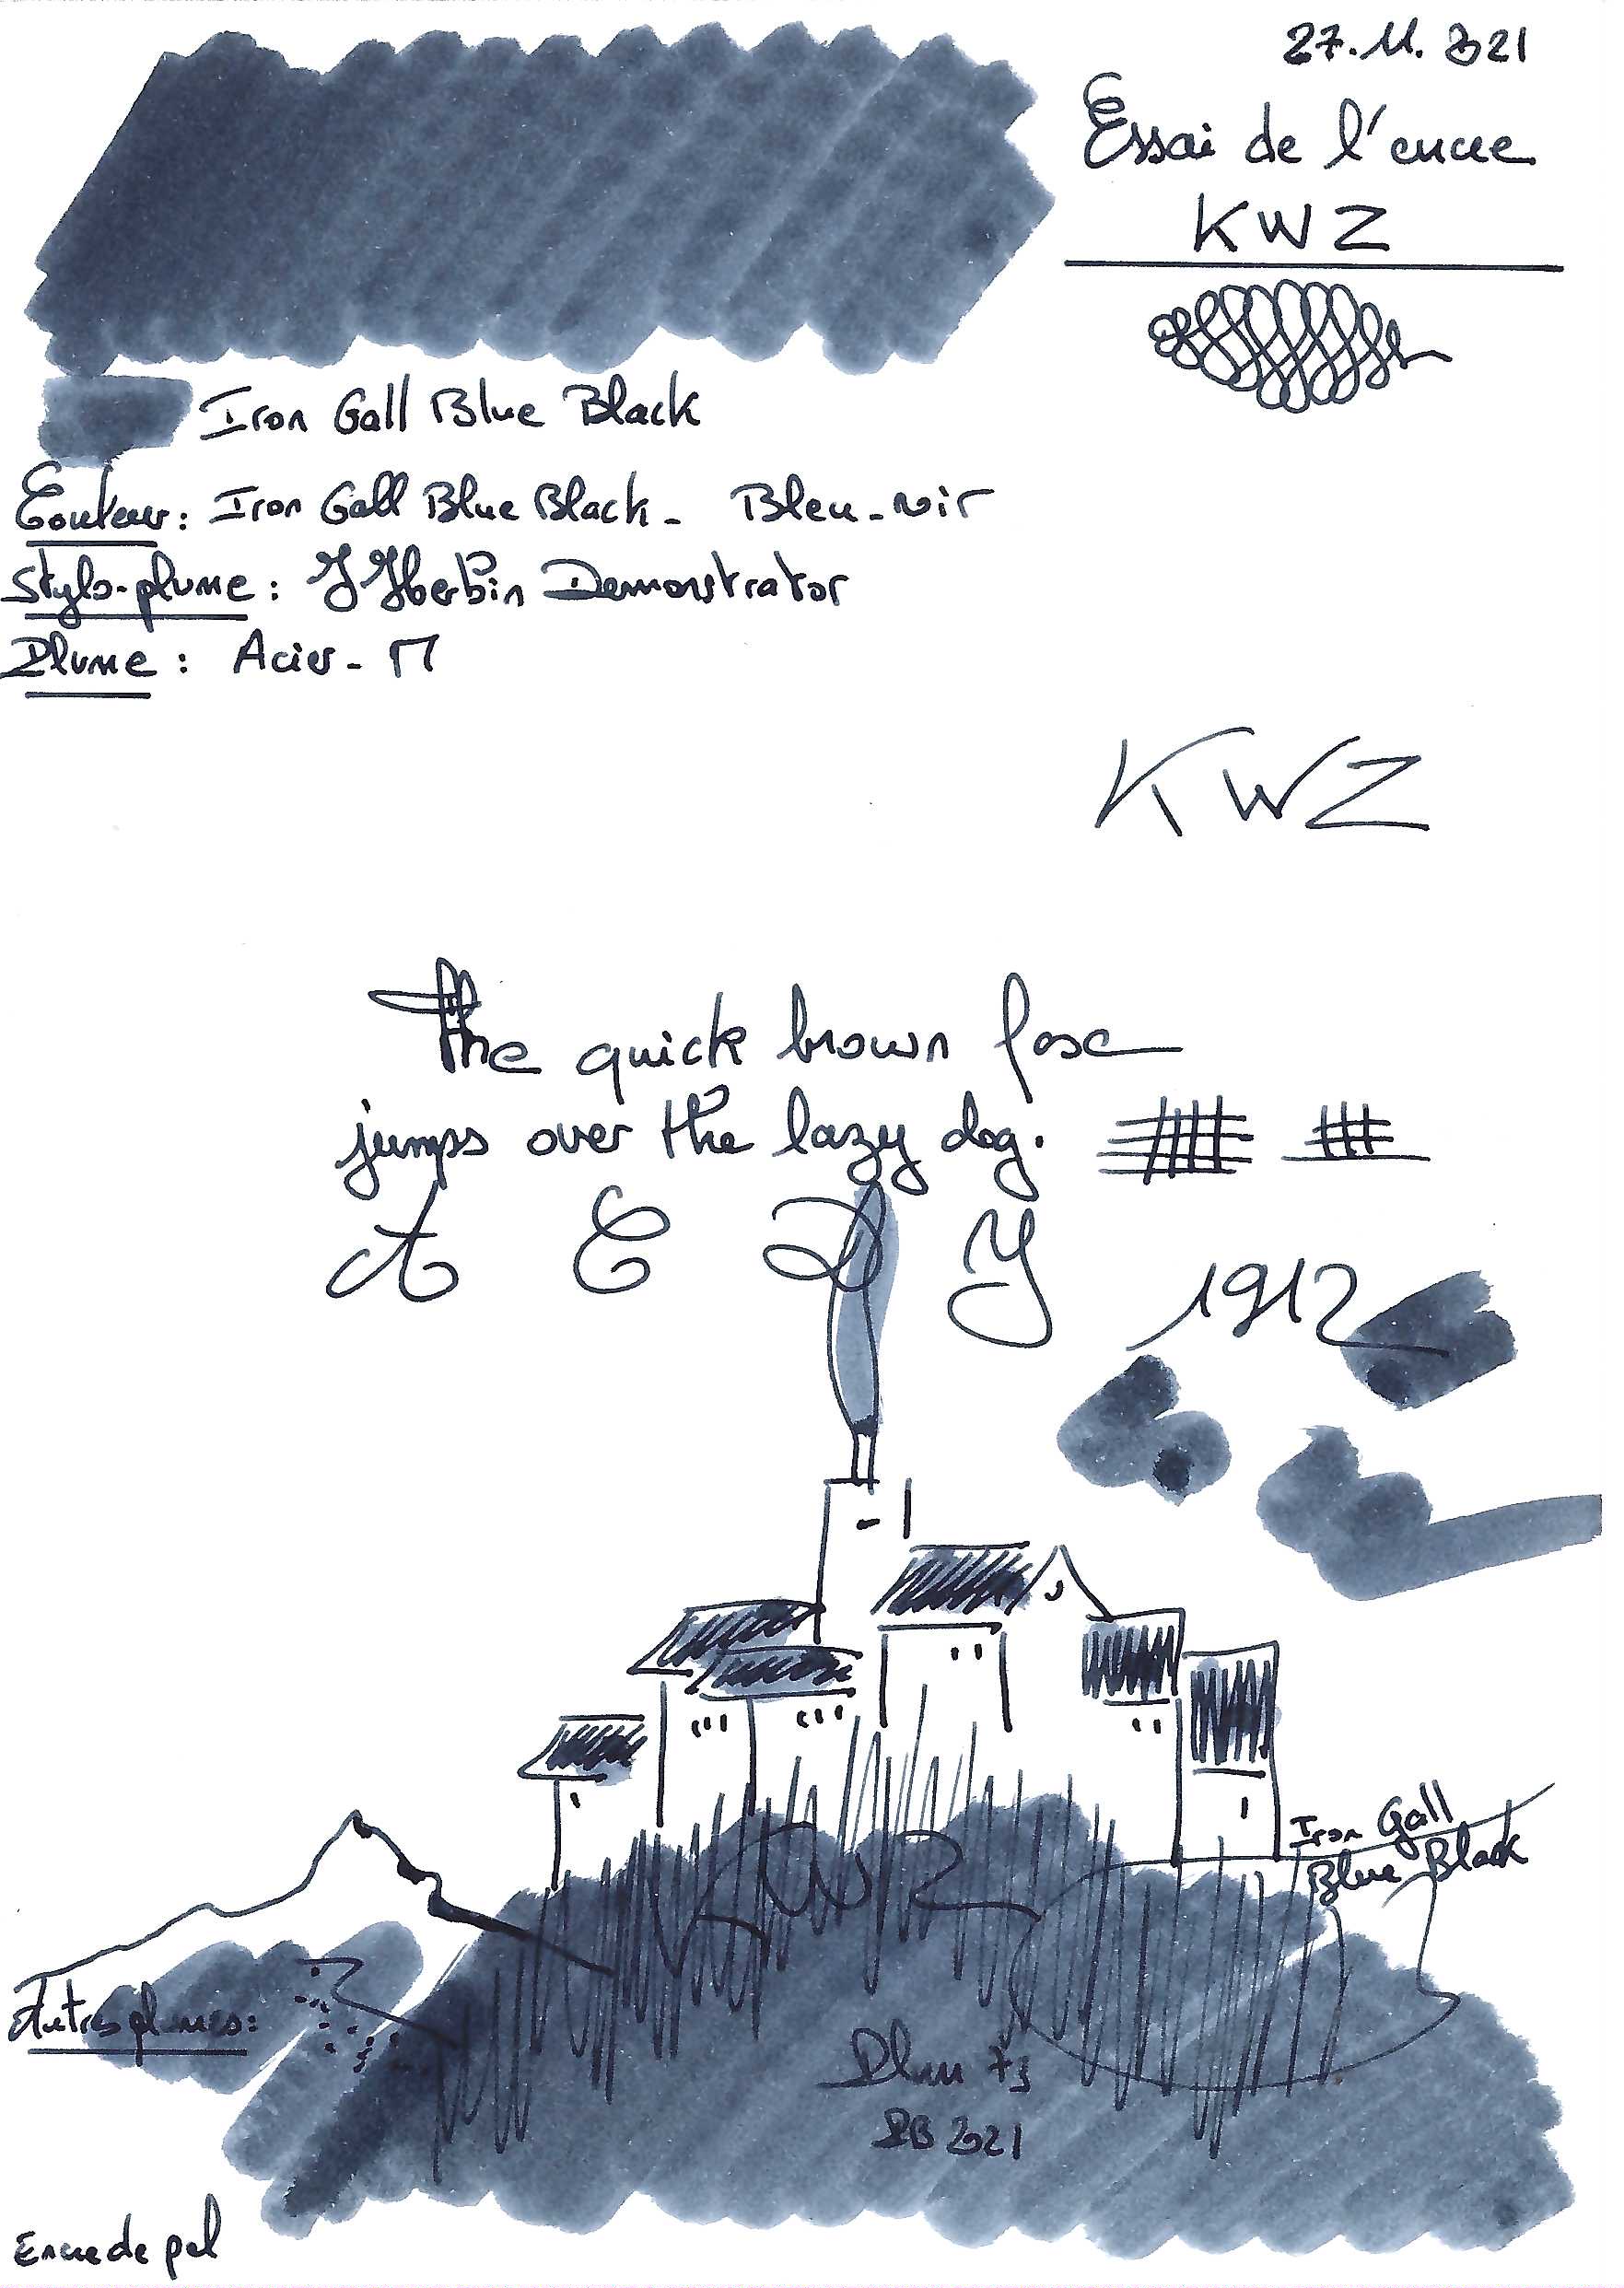 27.11.2021
Essai de l'encre
KWZ
Iron Gall Blue Black
Couleur: Iron Gall Blue Black - Bleu-noir
Stylo-plume: J Herbin Demonstrator
Plume: Acier - M
KWZ
The quick brown fox
jumps over the lazy dog.
A E D Y
1912
Iron Gall
Blue Black
KWZ
Autres plumes:
Plum
2021
Encre de pal